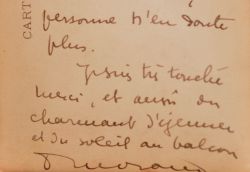 CART
personne n'en doute
plus.
Je suis très touché
merci, et aussi du
charmant déjeuner
et du soleil au balcon